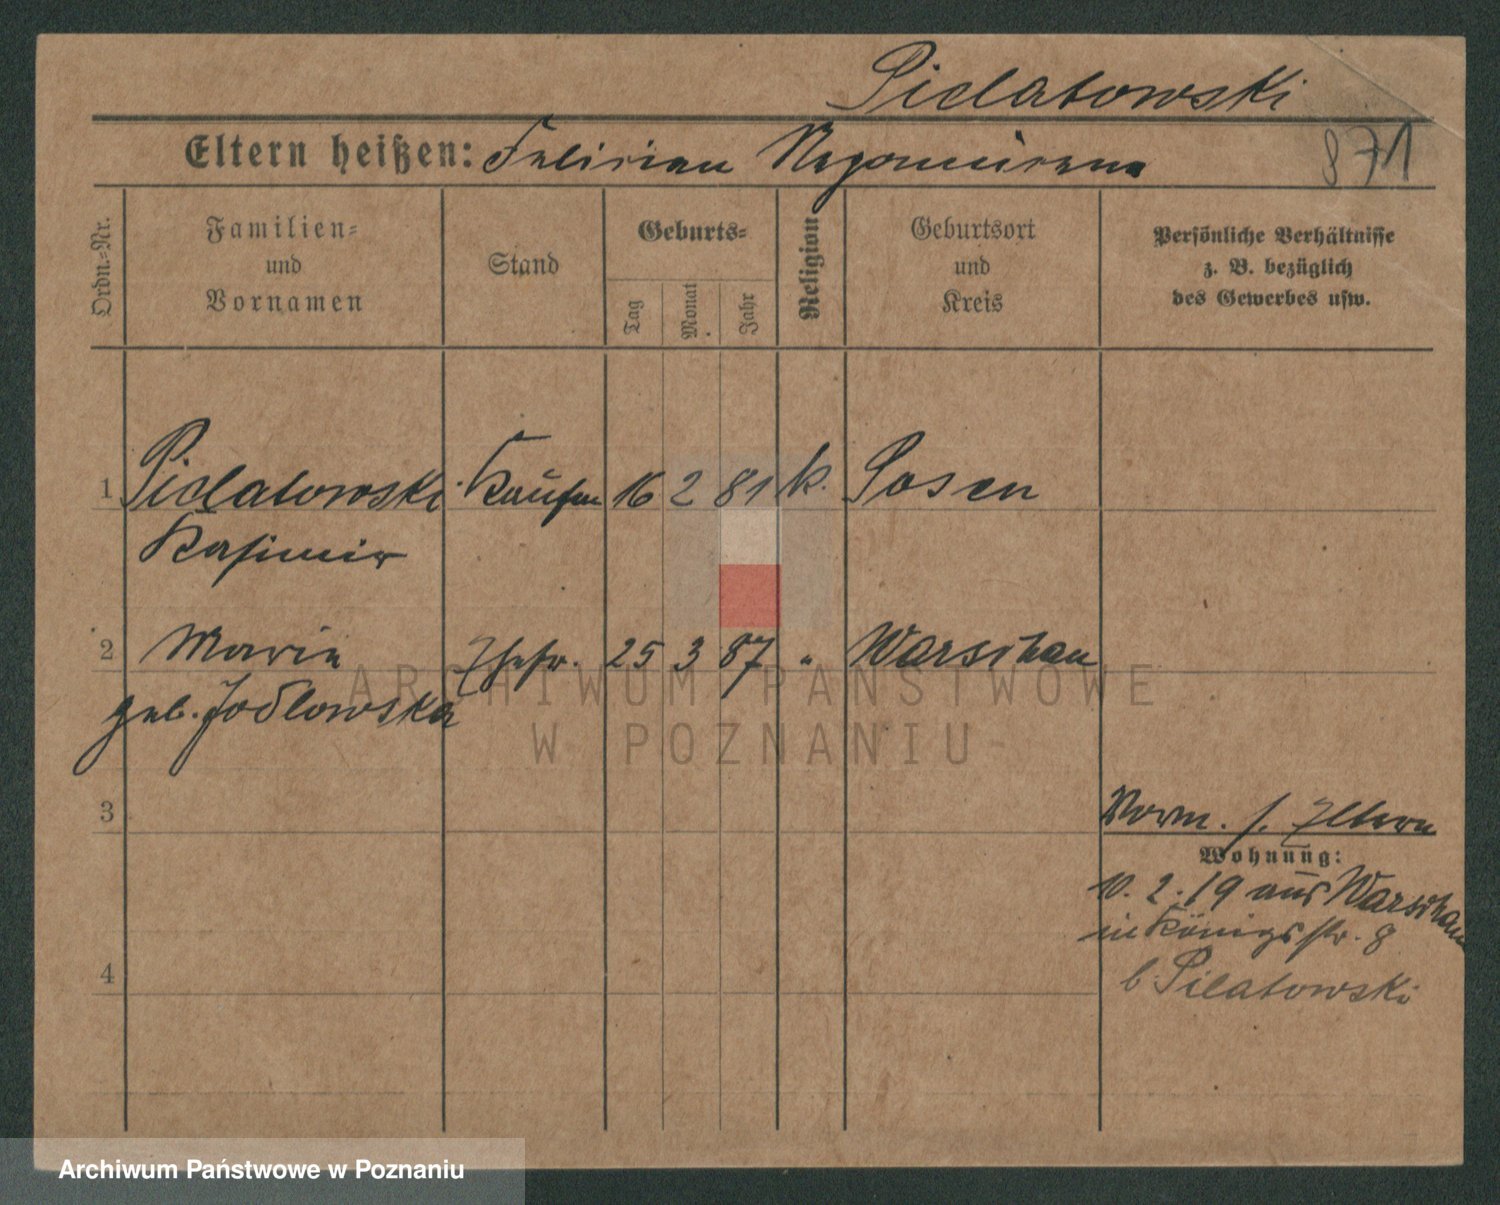 Piclatowski
Eltern heißen: Felician Nepomucena
871
Ordn.-Nr.
Familien-
und
Vornamen
Stand
Geburts-
Tag
Monat
Jahr
Religion
Geburtsort
und
Kreis
Persönliche Verhältnisse
z. B. bezüglich
des Gewerbes usw.
1 Piclatowski Kaufm 16 2 81 k. Posen
Kasimir
2 Marie Ehefr. 25 3 87 " Warschau
geb. Jodlowska
ARCHIWUM PAŃSTWOWE
W POZNANIU
3
Vorm. s. Eltern
Wohnung:
10. 2. 19 aus Warschau
in Königsstr. 8
4
b. Pilatowski
Archiwum Państwowe w Poznaniu